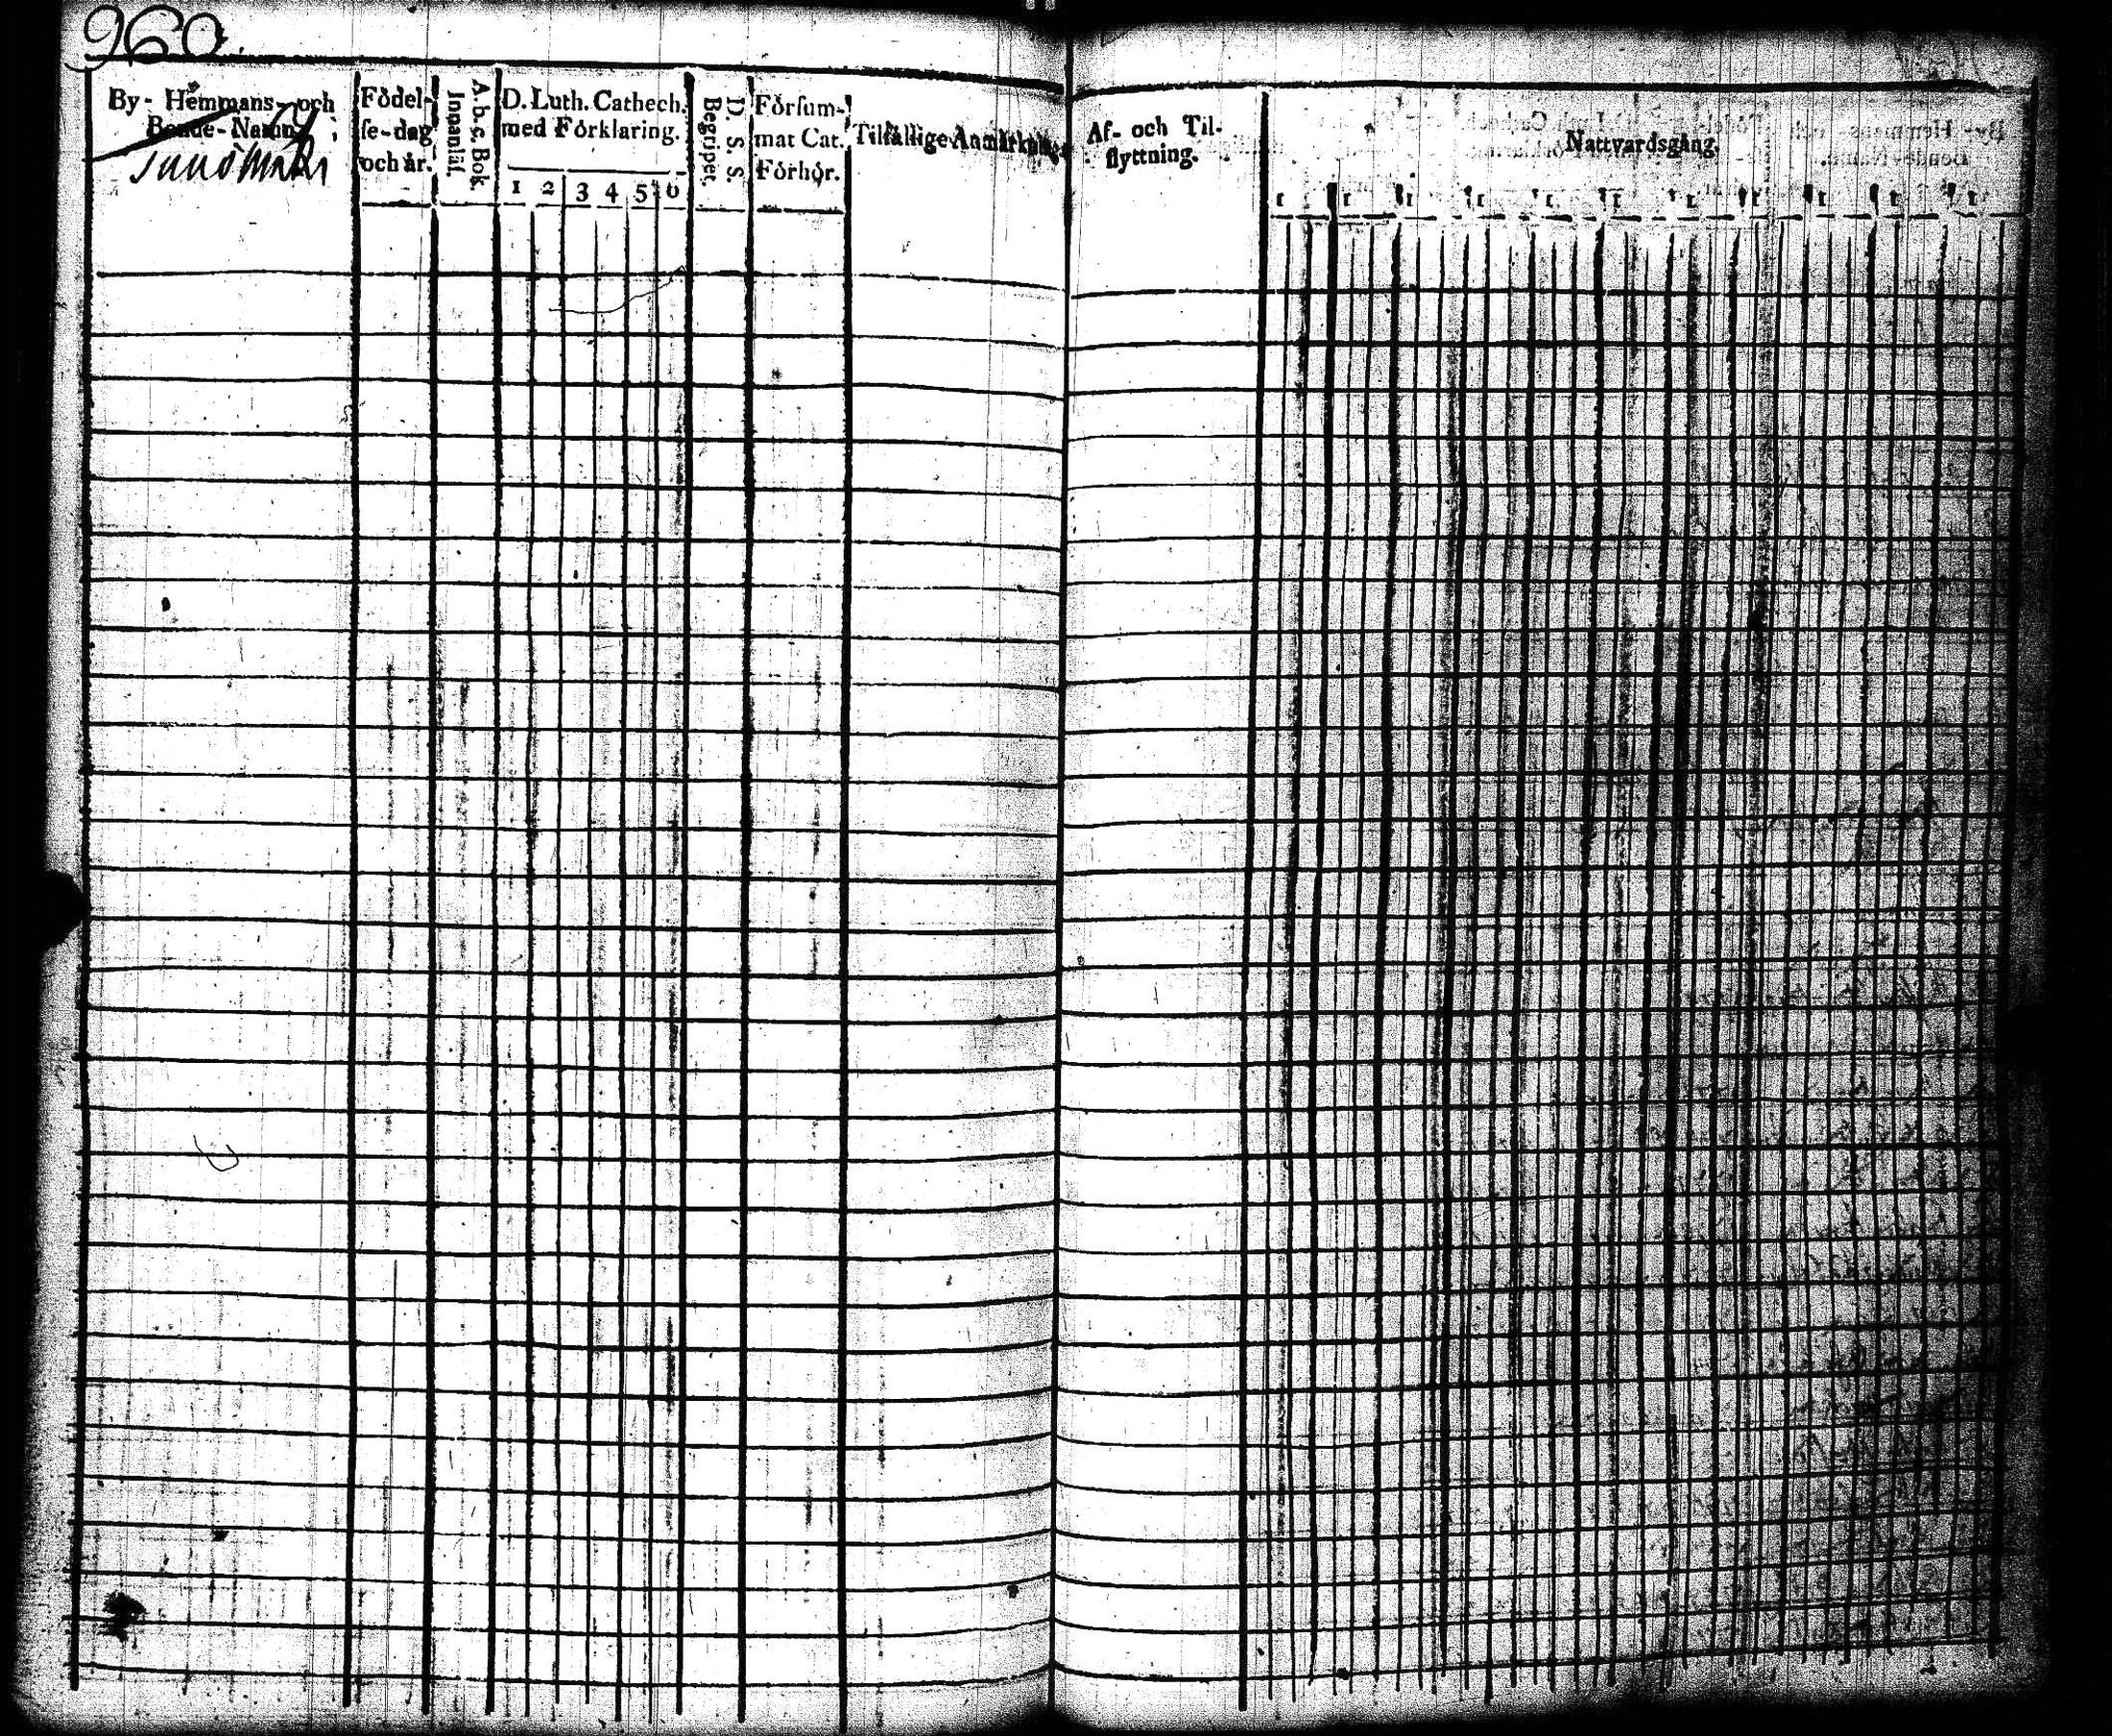 260.
By- Hemmans- och
Bonde-Namn
Födel-
se-dag
och år.
A.b.c. Bok
Innanläs.
D. Luth. Cathech.
med Förklaring.
1 2 3 4 5 6
D. S. S.
Begripet.
Försum-
mat Cat.
Förhör.
Tilfällige Anmärkningar
Af- och Til-
flyttning.
Nattvardsgång.
1 1 1 1 1 1 1 1 1 1 1